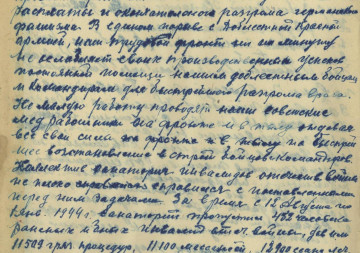 расплаты и окончательного разгрома германского
фашизма. В едином порыве с доблестной Красной
армией, наш трудовой фронт ни на минуту
не ослабляет своих производственных усилий
помощи нашим доблестным бойцам
и командирам для быстрейшего разгрома врага.
Не малую работу проводят наши советские
мед. работники на фронте и в тылу отдавая
все свои силы на фронте и в тылу на быстрей
шее восстановление в строй бойцов и командиров
Коллектив санатория инвалидов отечествен. войны
не плохо справился с поставленными
перед ним задачами. За время с 12 августа по
1 янв. 1944 г. санаторий пропустил 432 человека
раненых и больных инвалид. отеч. войны, дав им
11509 гряз. процедур, 11100 массажей, 12900